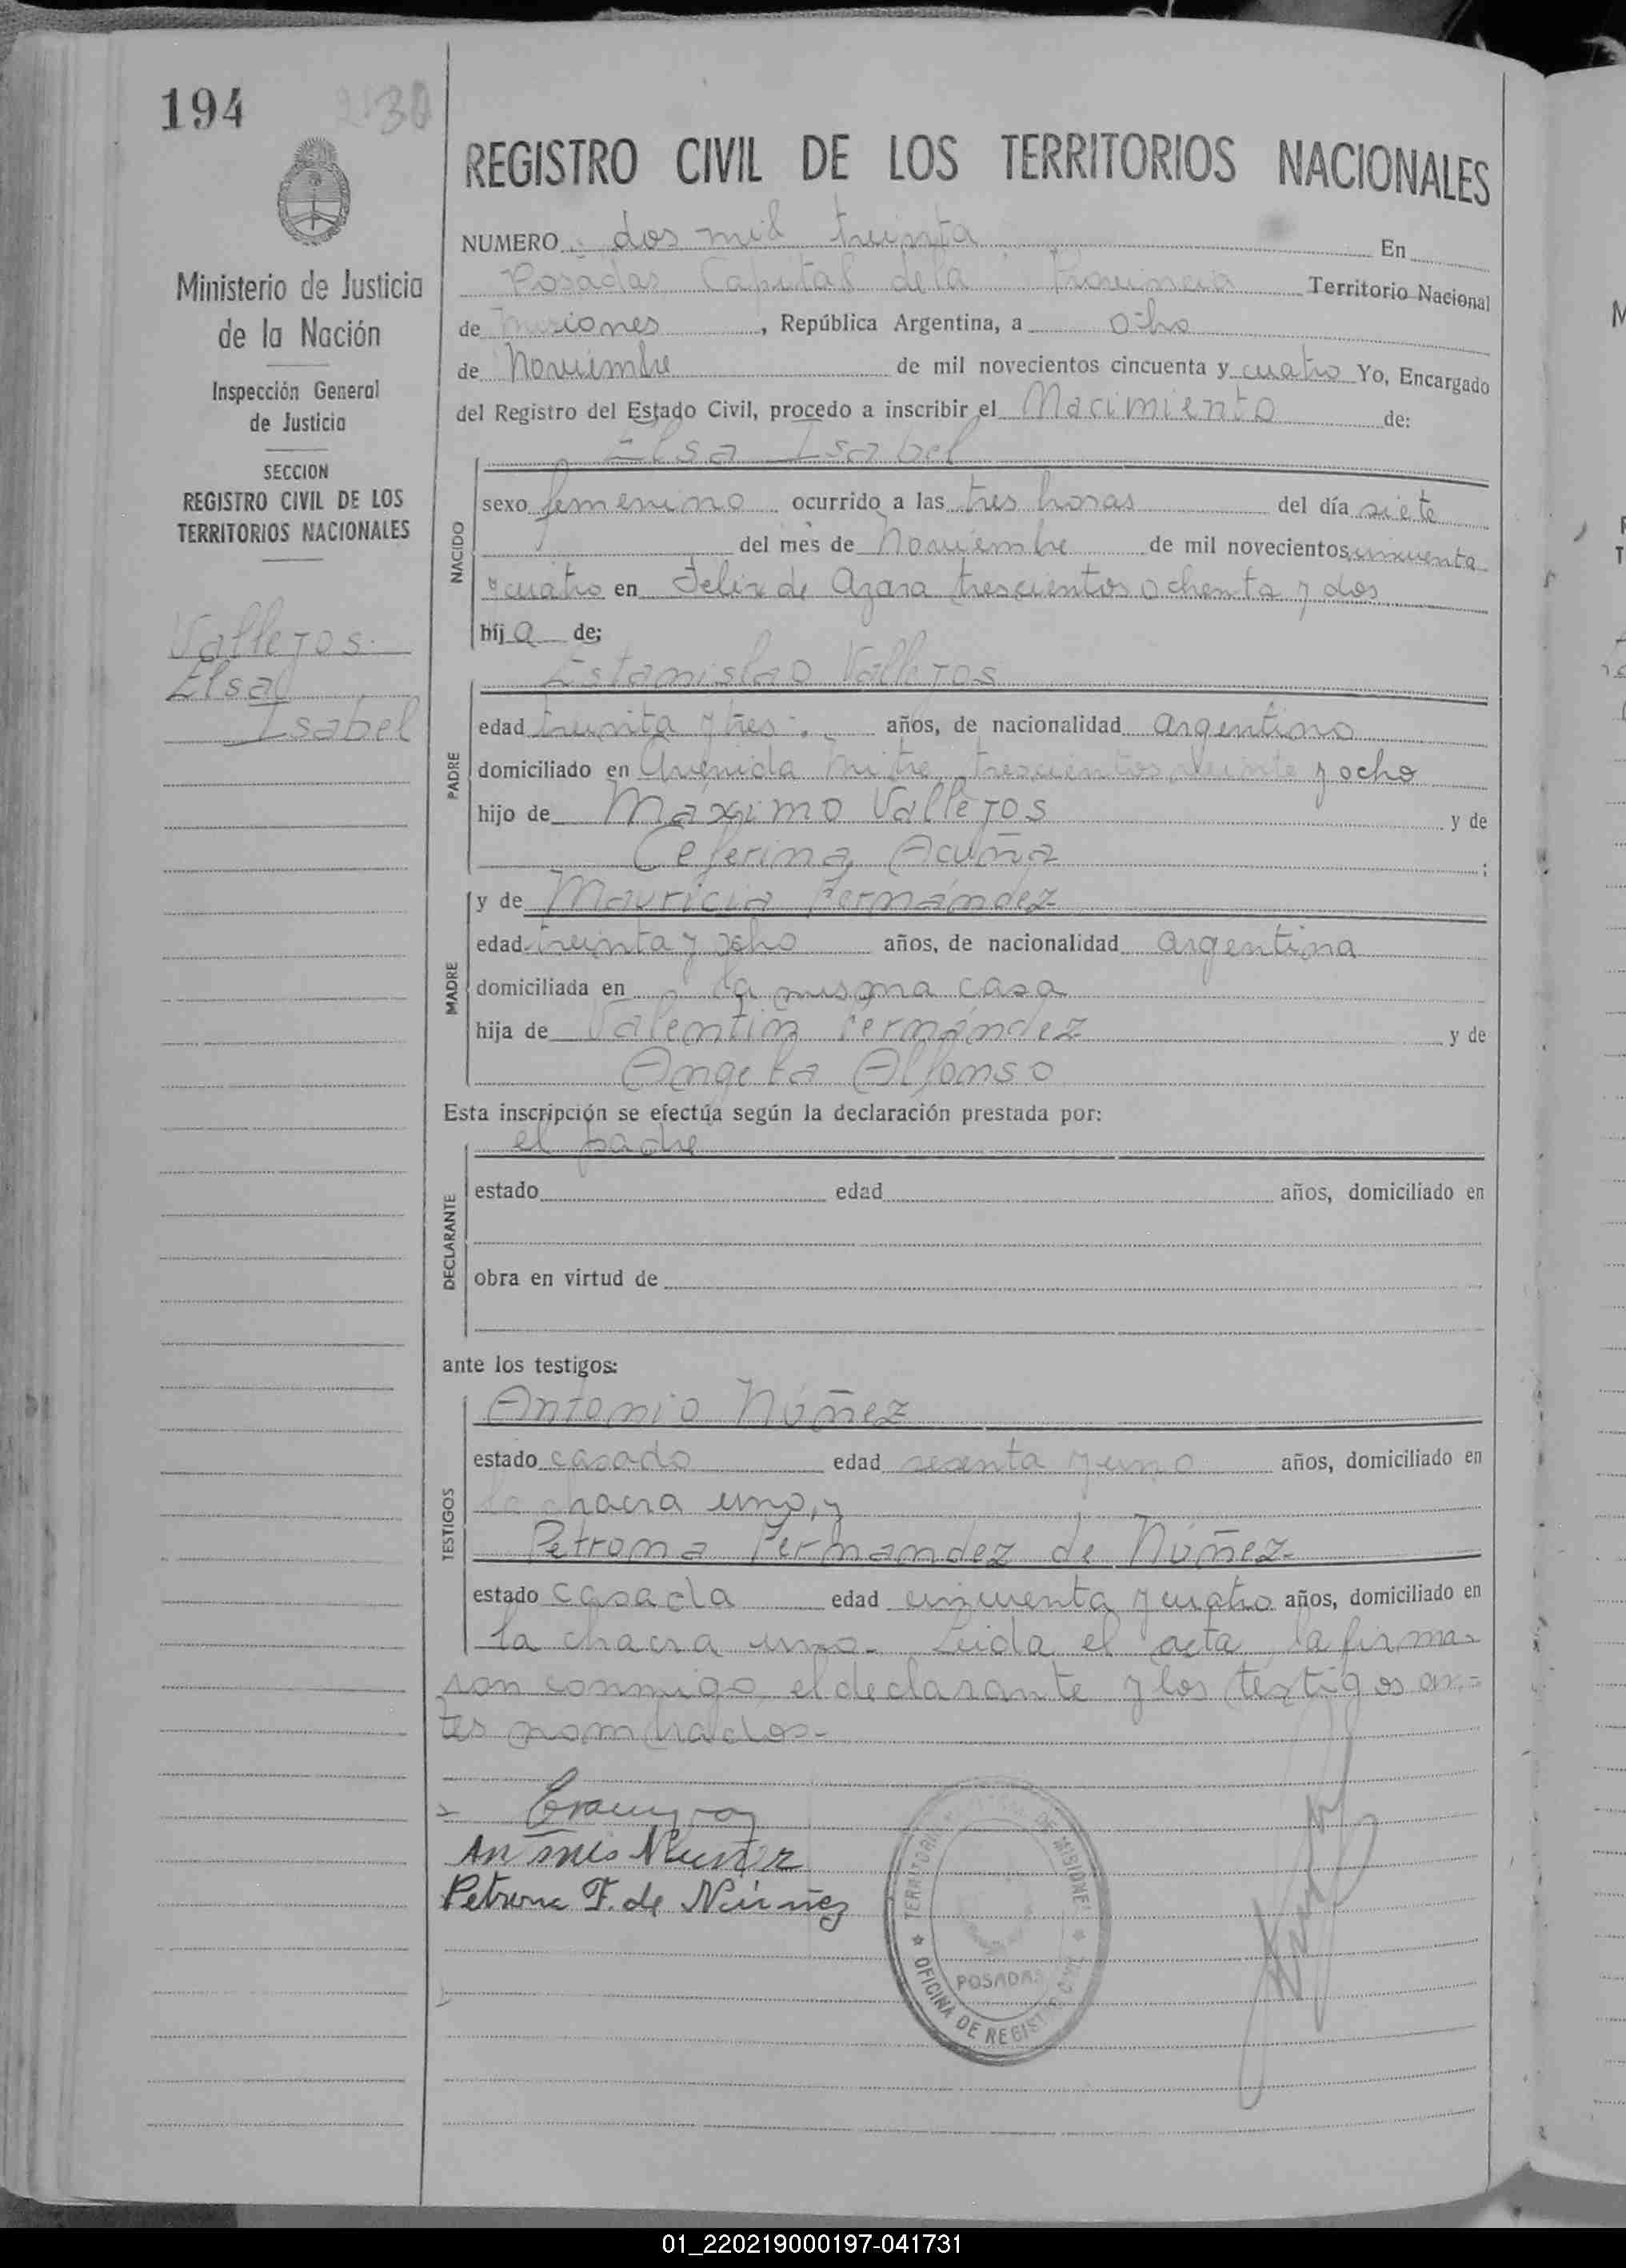 194
2030
REGISTRO CIVIL DE LOS TERRITORIOS NACIONALES
Ministerio de Justicia
de la Nación
Inspección General
de Justicia
SECCION
REGISTRO CIVIL DE LOS
TERRITORIOS NACIONALES
Vallejos
Elsa
Isabel
NUMERO dos mil treinta En
Posadas Capital de la Provincia Territorio Nacional
de Misiones, República Argentina, a ocho
de Noviembre de mil novecientos cincuenta y cuatro Yo, Encargado
del Registro del Estado Civil, procedo a inscribir el Nacimiento de:
Elsa Isabel
NACIDO
sexo femenino ocurrido a las tres horas del día siete
del mes de Noviembre de mil novecientos cincuenta
y cuatro en Felix de Azara trescientos ochenta y dos
hija de;
Estanislao Vallejos
PADRE
edad treinta y tres.- años, de nacionalidad argentino
domiciliado en Avenida Mitre trescientos veinte y ocho
hijo de Máximo Vallejos y de
Ceferina Acuña ;
MADRE
y de Mauricia Fernández
edad treinta y ocho años, de nacionalidad argentina
domiciliada en la misma casa
hija de Valentín Fernández y de
Angela Alfonso
Esta inscripción se efectúa según la declaración prestada por:
el padre
DECLARANTE
estado edad años, domiciliado en
obra en virtud de
ante los testigos:
TESTIGOS
Antonio Núñez
estado casado edad sesenta y uno años, domiciliado en
la chacra uno, y
Petrona Fernandez de Núñez-
estado casada edad cincuenta y cuatro años, domiciliado en
la chacra uno- Leida el acta, la firma-
ron conmigo, el declarante y los testigos an-
tes nombrados-
Antonio Nuñez
Petrona F. de Núñez
TERRITORIO DE MISIONES
POSADAS
OFICINA DE REGISTRO CIVIL
01_220219000197-041731